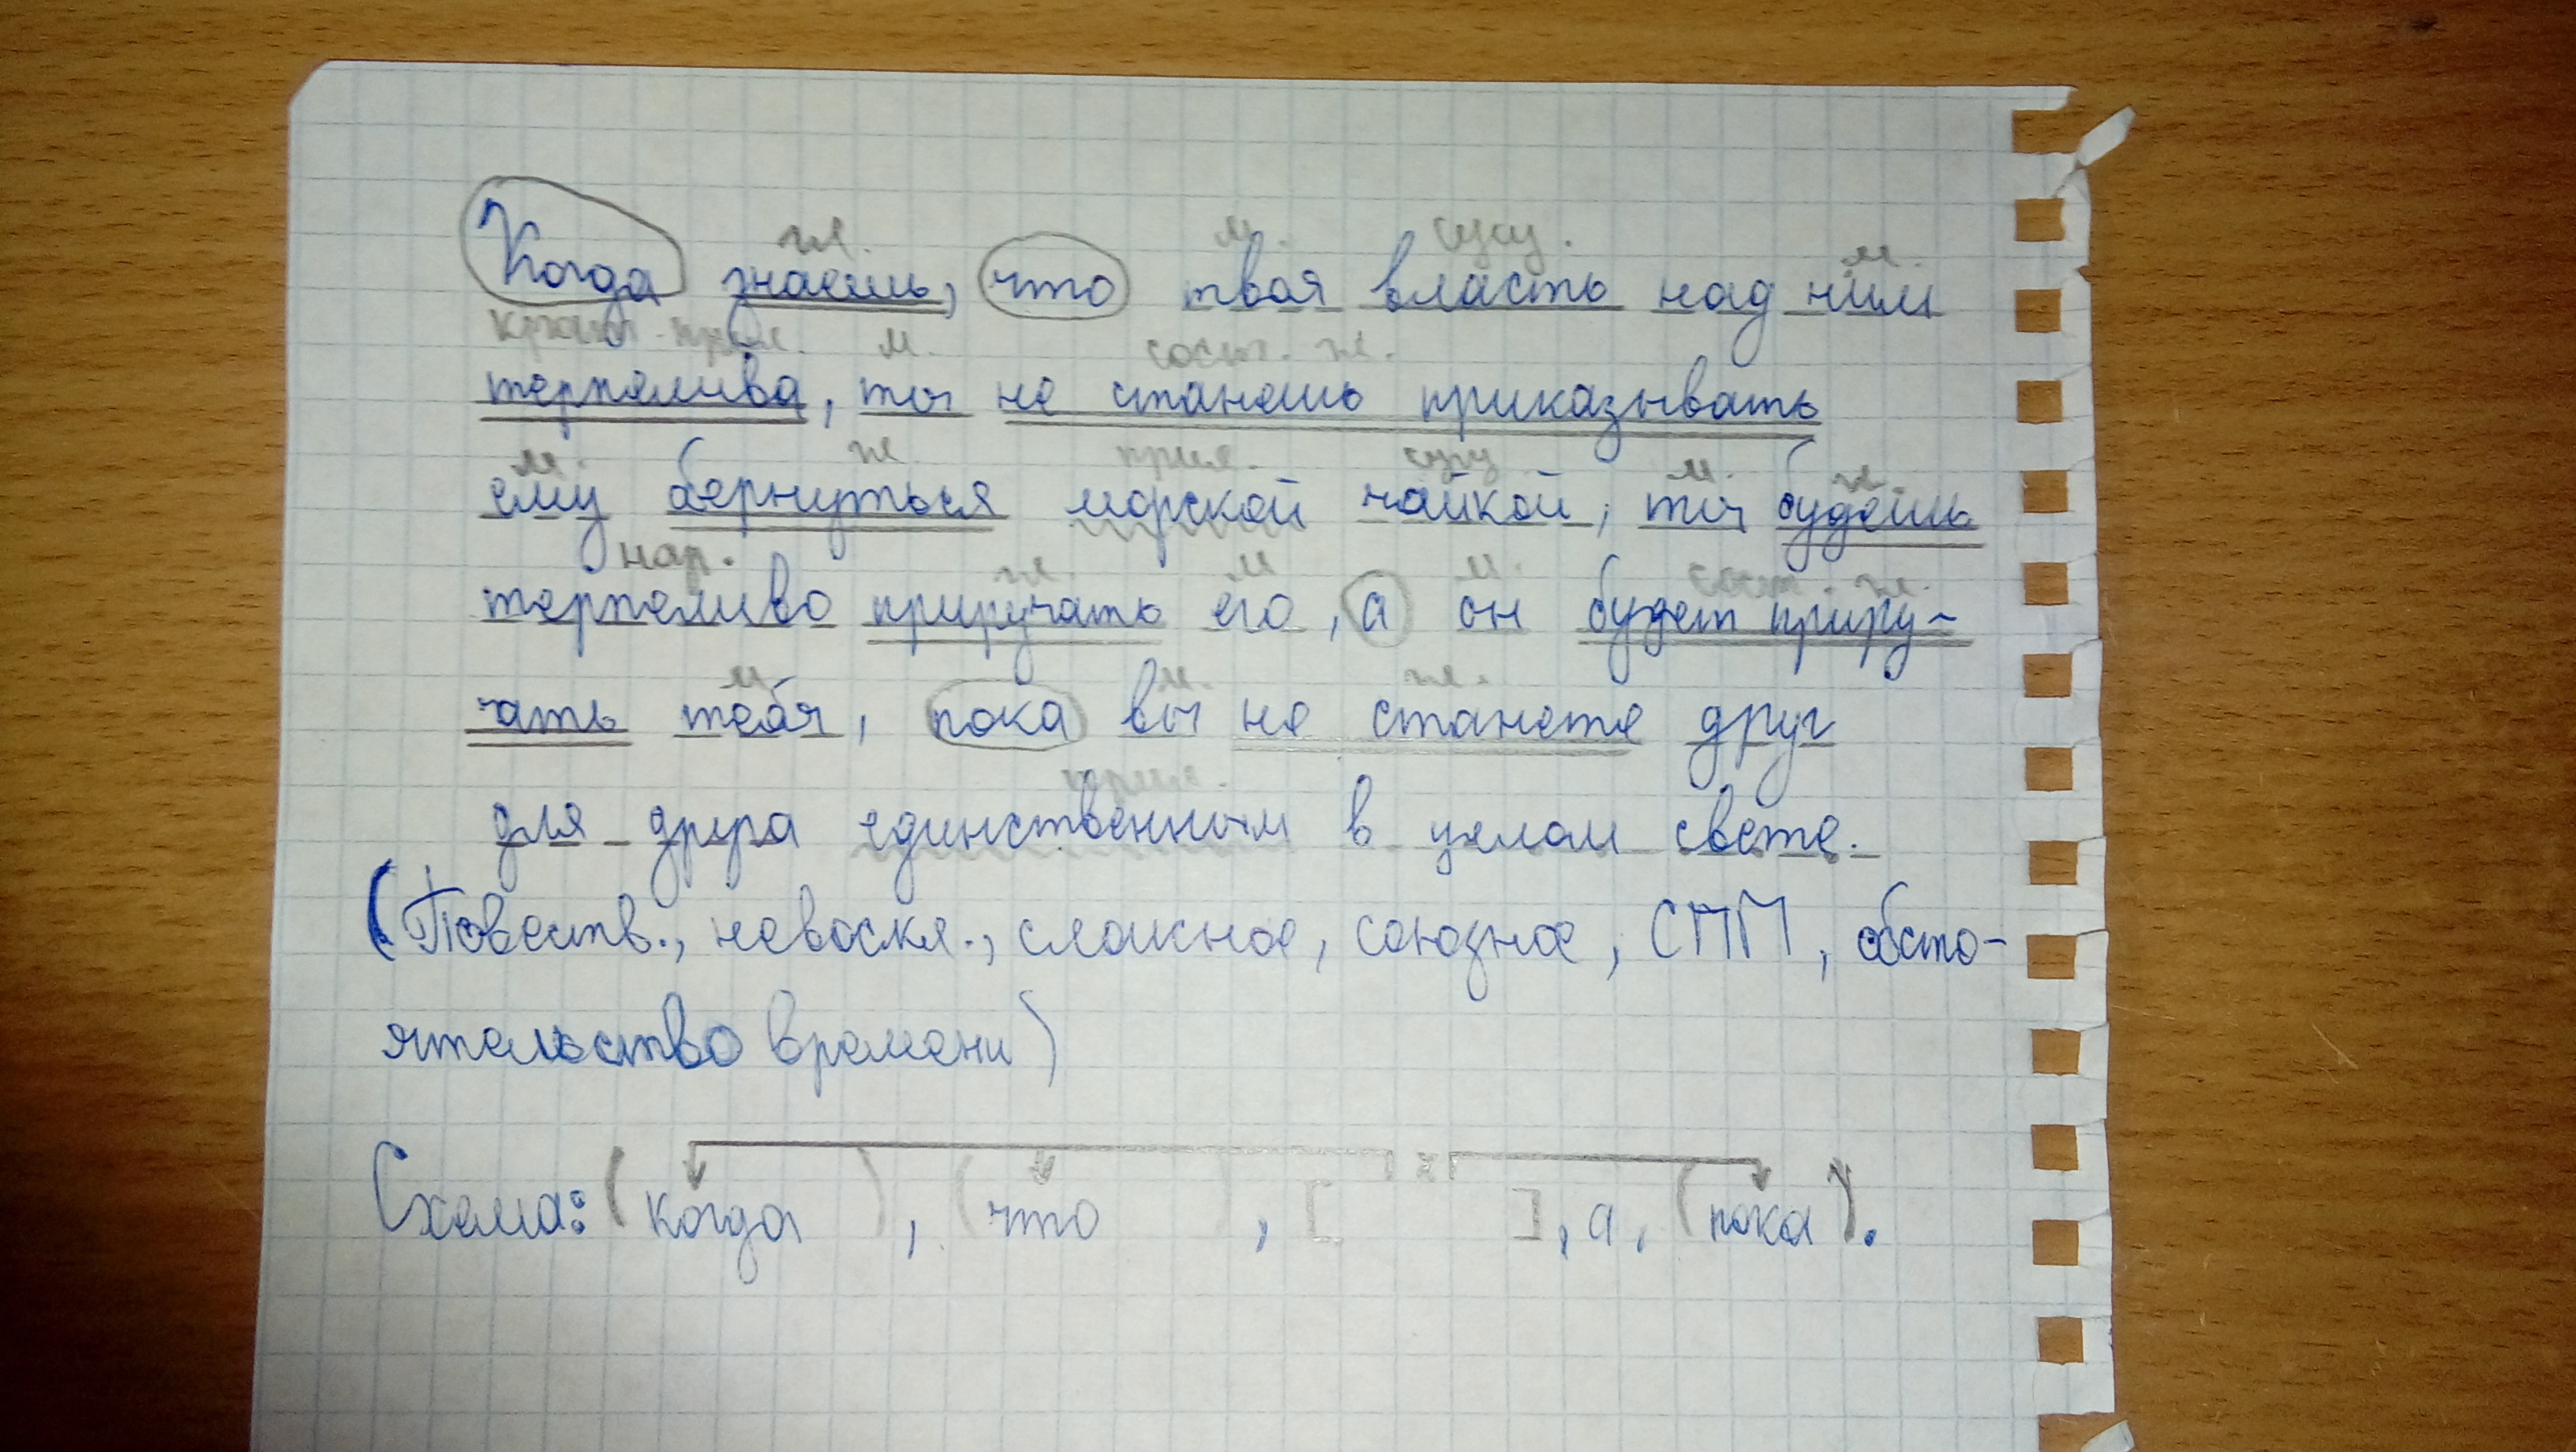 гл. м. сущ. м.
Когда знаешь, что твоя власть над ним
кратк. прил. м. сост. гл.
терпелива, ты не станешь приказывать
м. гл. прил. сущ м. гл.
ему обернуться морской чайкой, ты будешь
нар. гл. м м. сост. гл.
терпеливо приручать его, а он будет приру-
м м. гл.
чать тебя, пока вы не станете друг
прил.
для друга единственным в целом свете.
(Повеств., невоскл., сложное, союзное, СПП, обсто-
ятельство времени)
Схема: (когда ), (что ), [ ], а, (пока).